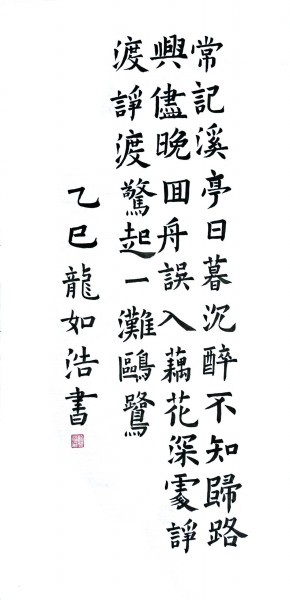 常記溪亭日暮沉醉不知歸路
興儘晚囬舟誤入藕花深處諍
渡諍渡驚起一灘鷗鷺
乙巳龍如浩書